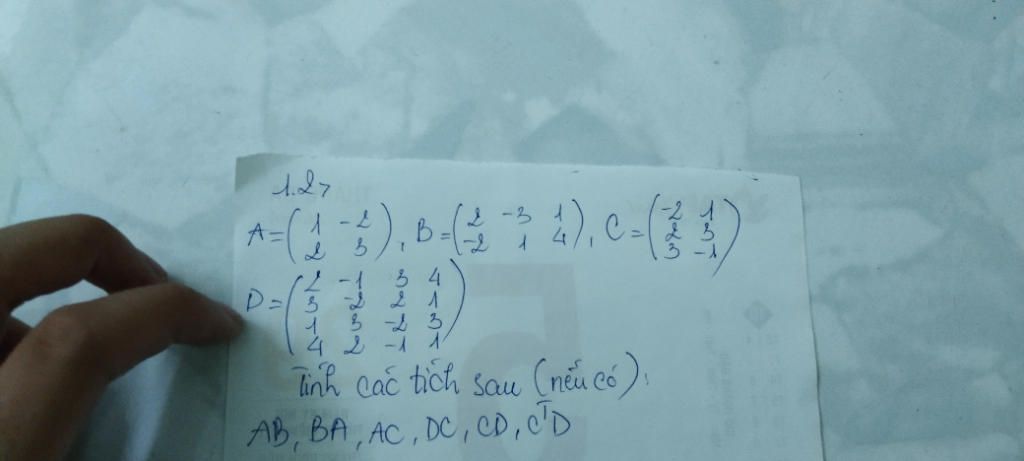 1.2>
A = (1 -2), B = (2 -3 1), C = (-2 1)
(2 3) (-2 1 4) (2 3)
(3 -1)
D = (2 -1 3 4)
(3 -2 2 1)
(1 3 -2 3)
(4 2 -1 1)
Tính các tích sau (nếu có):
AB, BA, AC, DC, CD, CᵀD